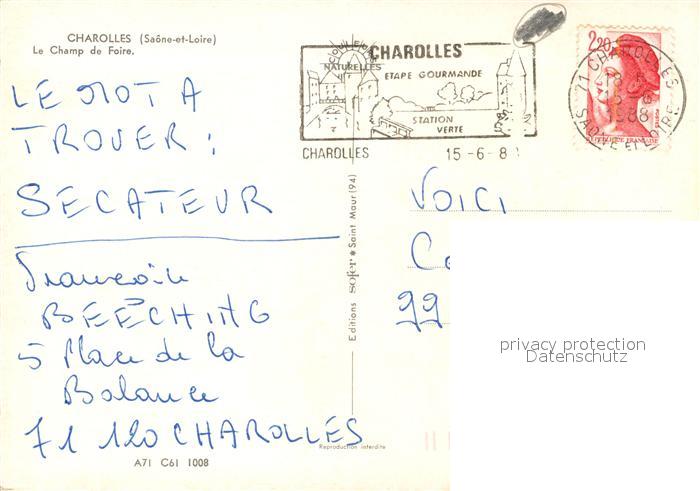 CHAROLLES (Saône-et-Loire)
Le Champ de Foire.
LE MOT A
TROUVER :
SECATEUR
Francoise
BEECHING
5 Place de la
Balance
71 120 CHAROLLES
A71 C61 1008
Reproduction interdite
Editions sofer * Saint Maur (94)
COULEURS
NATURELLES
CHAROLLES
ETAPE GOURMANDE
STATION
VERTE
CHAROLLES
15-6-8
2,20
REPUBLIQUE FRANÇAISE
71 CHAROLLES
1988
SAONE ET LOIRE
VOICI
99
privacy protection
Datenschutz